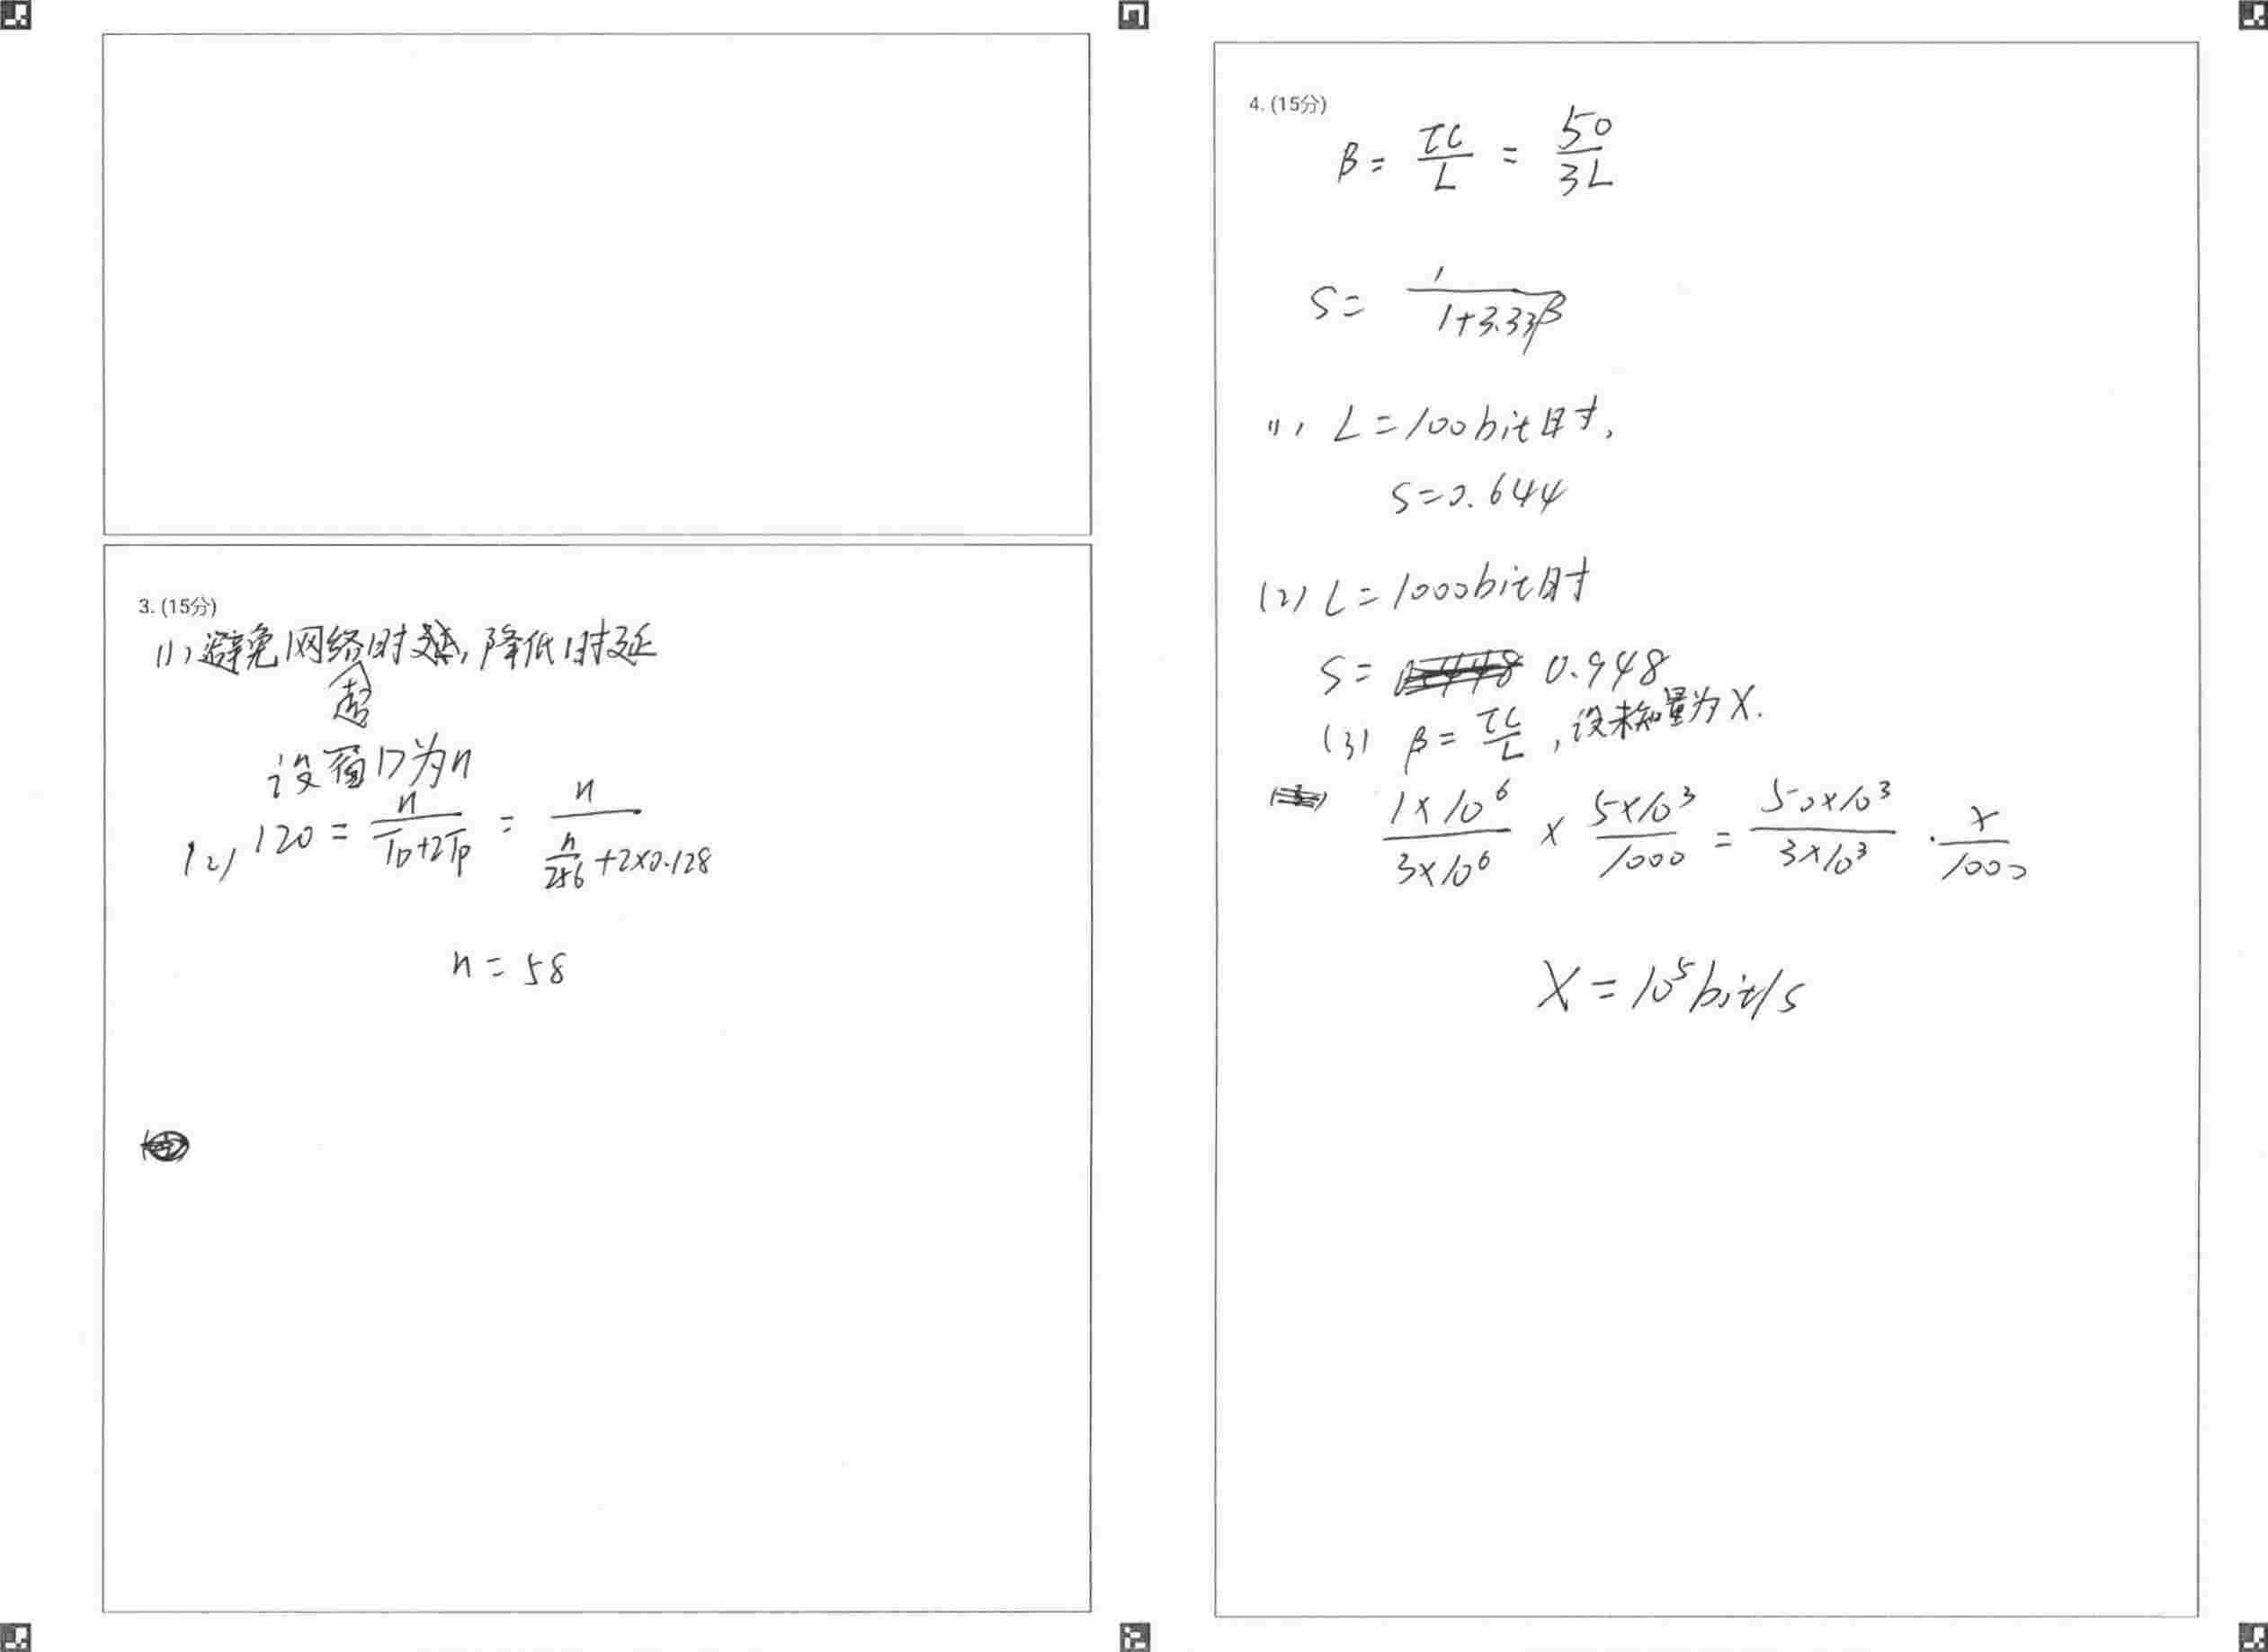 3. (15分)
(1) 避免网络时延, 降低时延
设窗口为n
(2) 120 = n/(TD+2TP) = n/(n/256+2×0.128)
n = 58
4. (15分)
β = τC/L = 50/3L
S = 1/(1+3.33β)
(1) L = 100bit时,
S = 0.644
(2) L = 1000bit时
S = 0.948
(3) β = τC/L , 设未知量为X.
1×10⁶/3×10⁶ × 5×10³/1000 = 50×10³/3×10³ · X/1000
X = 10⁵bit/s